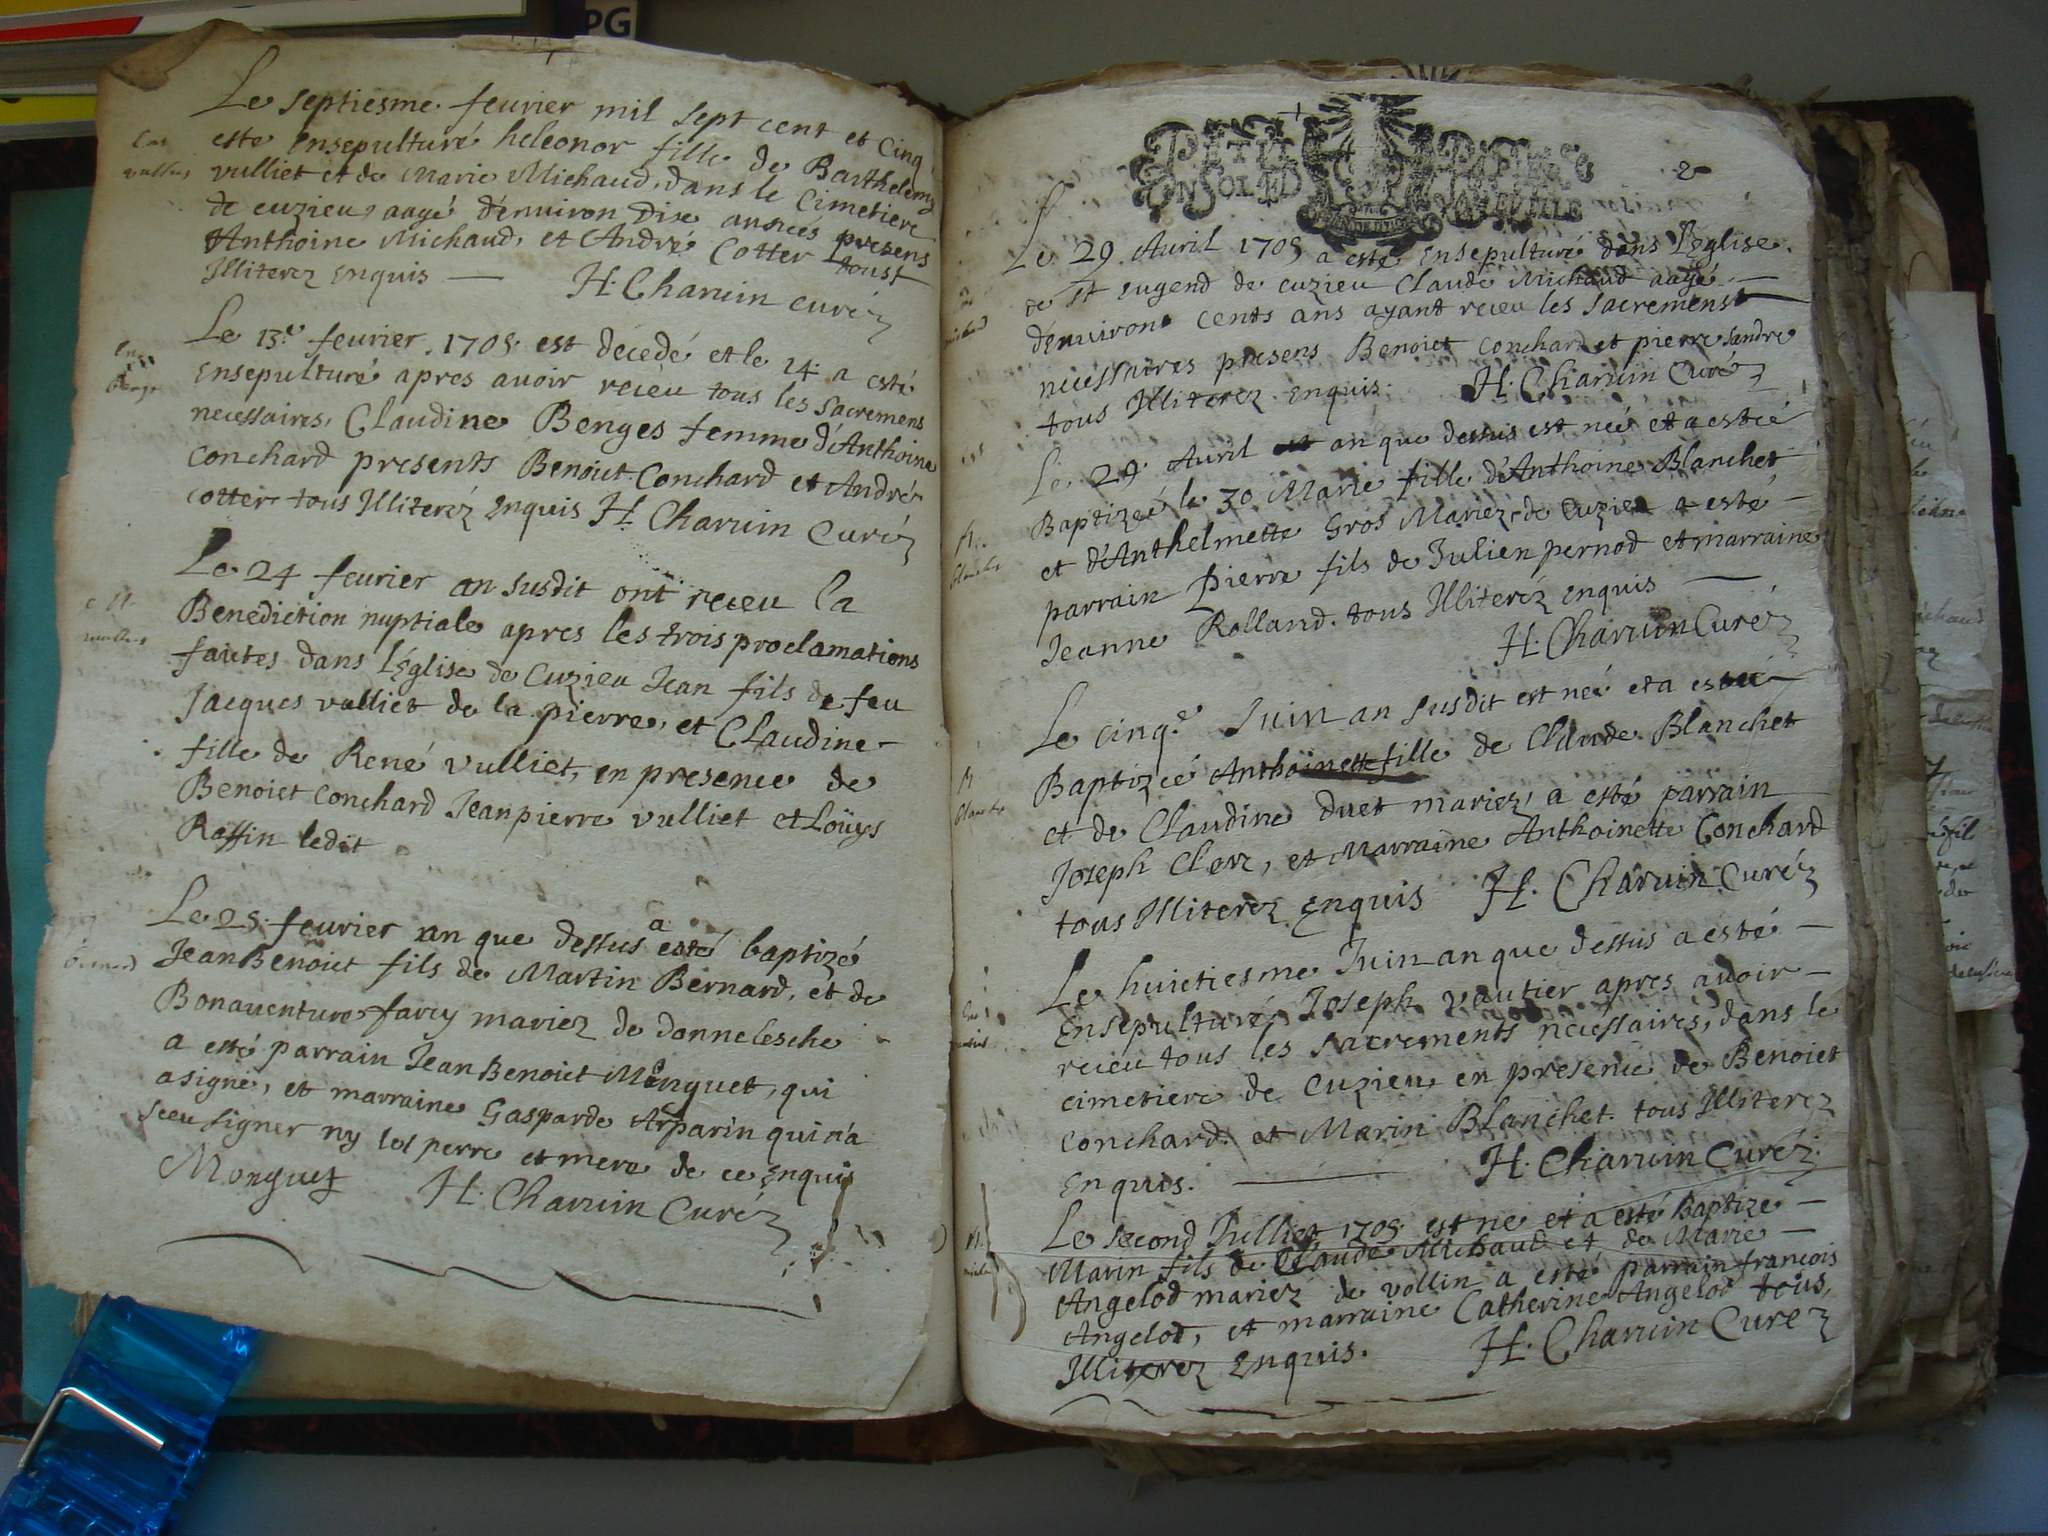 PG
Le septiesme feurier mil sept cent et Cinq
este ensepulturé heleonor fille de Barthelemy
vulliet et de Marie Michaud, dans le Cimetiere
de cuzieu, aagé d'enuiron Dix années presens
Anthoine Michaud, et André Cotter toust
Illiterez enquis H. Charuin curéz
Le 13.e feurier 1705 est decedé et le 14 a esté
ensepulturé apres auoir receu tous les sacremens
necessaires, Claudine Benges femme d'Anthoine
Conchard presents Benoict Conchard et André
cotter tous Illiteréz enquis H. Charuin Curéz
Le 24 feurier an susdit ont receu la
Benediction nuptiale apres les trois proclamations
faites dans l'Église de Cuzieu Jean fils de feu
Jacques vulliet de la pierre, et Claudine
fille de René vulliet, en presence de
Benoict Conchard Jeanpierre vulliet et Loüys
Roffin ledit
Le 25 feurier an que dessus a esté baptizé
Jean Benoict fils de Martin Bernard, et de
Bonauenture farcy mariez de donnelesche
a esté parrain Jean Benoict Monguet, qui
a signé, et marraine Gasparde Arparin qui n'a
sceu signer ny les perre et mere de ce enquis
Monguet H. Charuin Curéz
PETIT PAPIER
2
Le 29 Auril 1705 a esté ensepulturé dans l'Eglise
de st eugend de cuzieu Claude Michaud aagé
d'enuiront cents ans ayant receu les sacremenst
necessaires presens Benoict Conchard et pierre sandre
tous Illiterez enquis. H. Charuin Curéz
Le 29 Auril an que dessus est née et a estéé
Baptizeé le 30 Marie fille d'Anthoine Blanchet
et d'Anthelmette Gros Mariéz, de Cuzieu a esté
parrain Pierre fils de Julien pernod et marraine
Jeanne Rolland. tous Illiteréz enquis
H. Charuin Curéz
Le cinq.e Juin an susdit est neé et a estéé
Baptizeé Anthoinette fille de Claude Blanchet
et de Claudine duet mariez, a esté parrain
Joseph Clerc, et Marraine Anthoinette Conchard
tous Illiterez enquis H. Charuin Curéz
Le huictiesme Juin an que dessus a esté
Ensepulturé Joseph vautier apres auoir
receu tous les sacrements necessaires, dans le
cimetiere de Cuzieu en presence de Benoict
Conchard. et Marin Blanchet. tous Illiterez
Enquis. H. Charuin Curéz
Le second Julliet 1705 est ne et a esté Baptize
Marin fils de Claude Michaud et de Marie
Angelod mariez de vollin a esté parrain francois
Angelod, et marraine Catherine Angelod tous,
Illiterez Enquis. H. Charuin Curéz